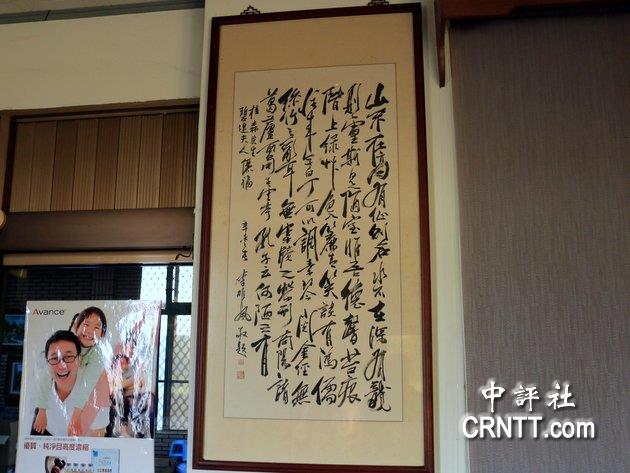 山不在高有仙則名水不在深有龍
則靈斯是陋室惟吾德馨苔痕
階上綠草色入簾青笑談有鴻儒
往來無白丁可以調素琴閱金經無
絲竹之亂耳無案牘之勞形南陽諸
葛廬西蜀子雲亭孔子云何陋之有
桂森先生
夫人儷福
敬題
Avance
優質、純淨且高度濃縮
中評社
CRNTT.com